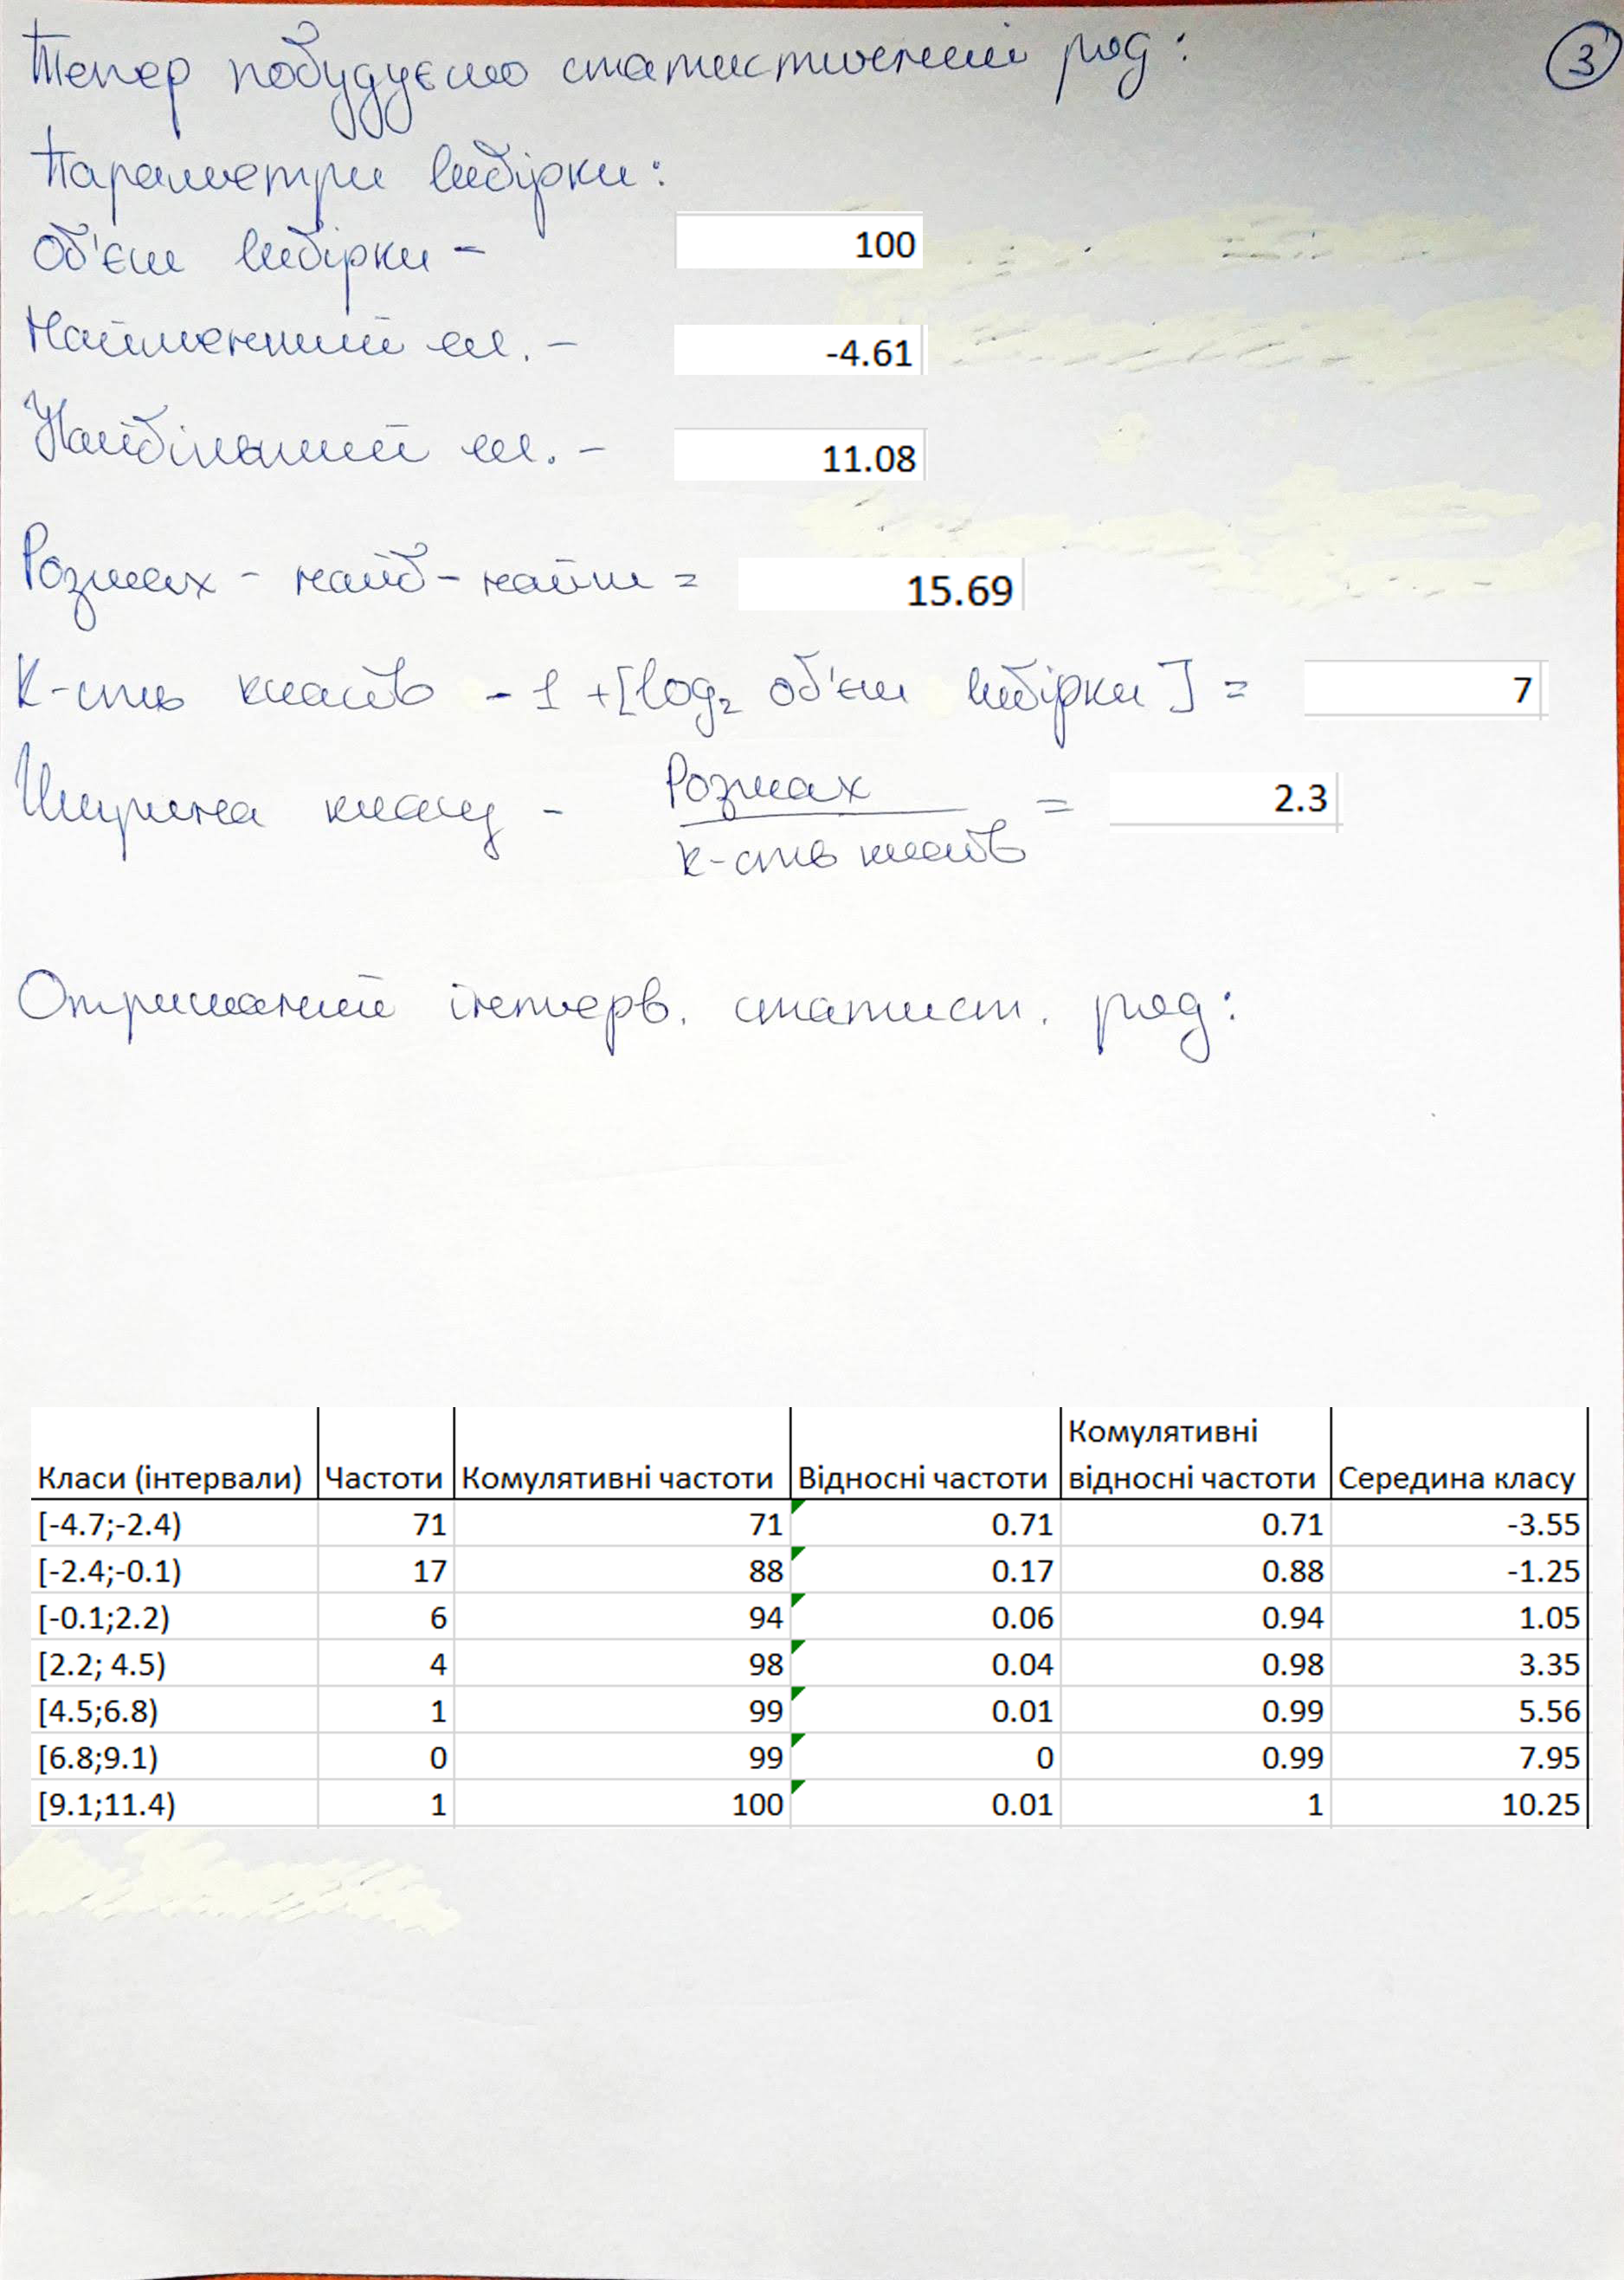 Тепер побудуємо статистичний ряд:
3
Параметри вибірки:
Об'єм вибірки - 100
Найменший ел. - -4.61
Найбільший ел. - 11.08
Розмах - найб - найм = 15.69
К-сть класів - 1 + [log₂ об'єм вибірки] = 7
Ширина класу - Розмах / к-сть класів = 2.3
Отриманий інтерв. статист. ряд:
Класи (інтервали) Частоти Комулятивні частоти Відносні частоти Комулятивні відносні частоти Середина класу
[-4.7;-2.4) 71 71 0.71 0.71 -3.55
[-2.4;-0.1) 17 88 0.17 0.88 -1.25
[-0.1;2.2) 6 94 0.06 0.94 1.05
[2.2; 4.5) 4 98 0.04 0.98 3.35
[4.5;6.8) 1 99 0.01 0.99 5.56
[6.8;9.1) 0 99 0 0.99 7.95
[9.1;11.4) 1 100 0.01 1 10.25